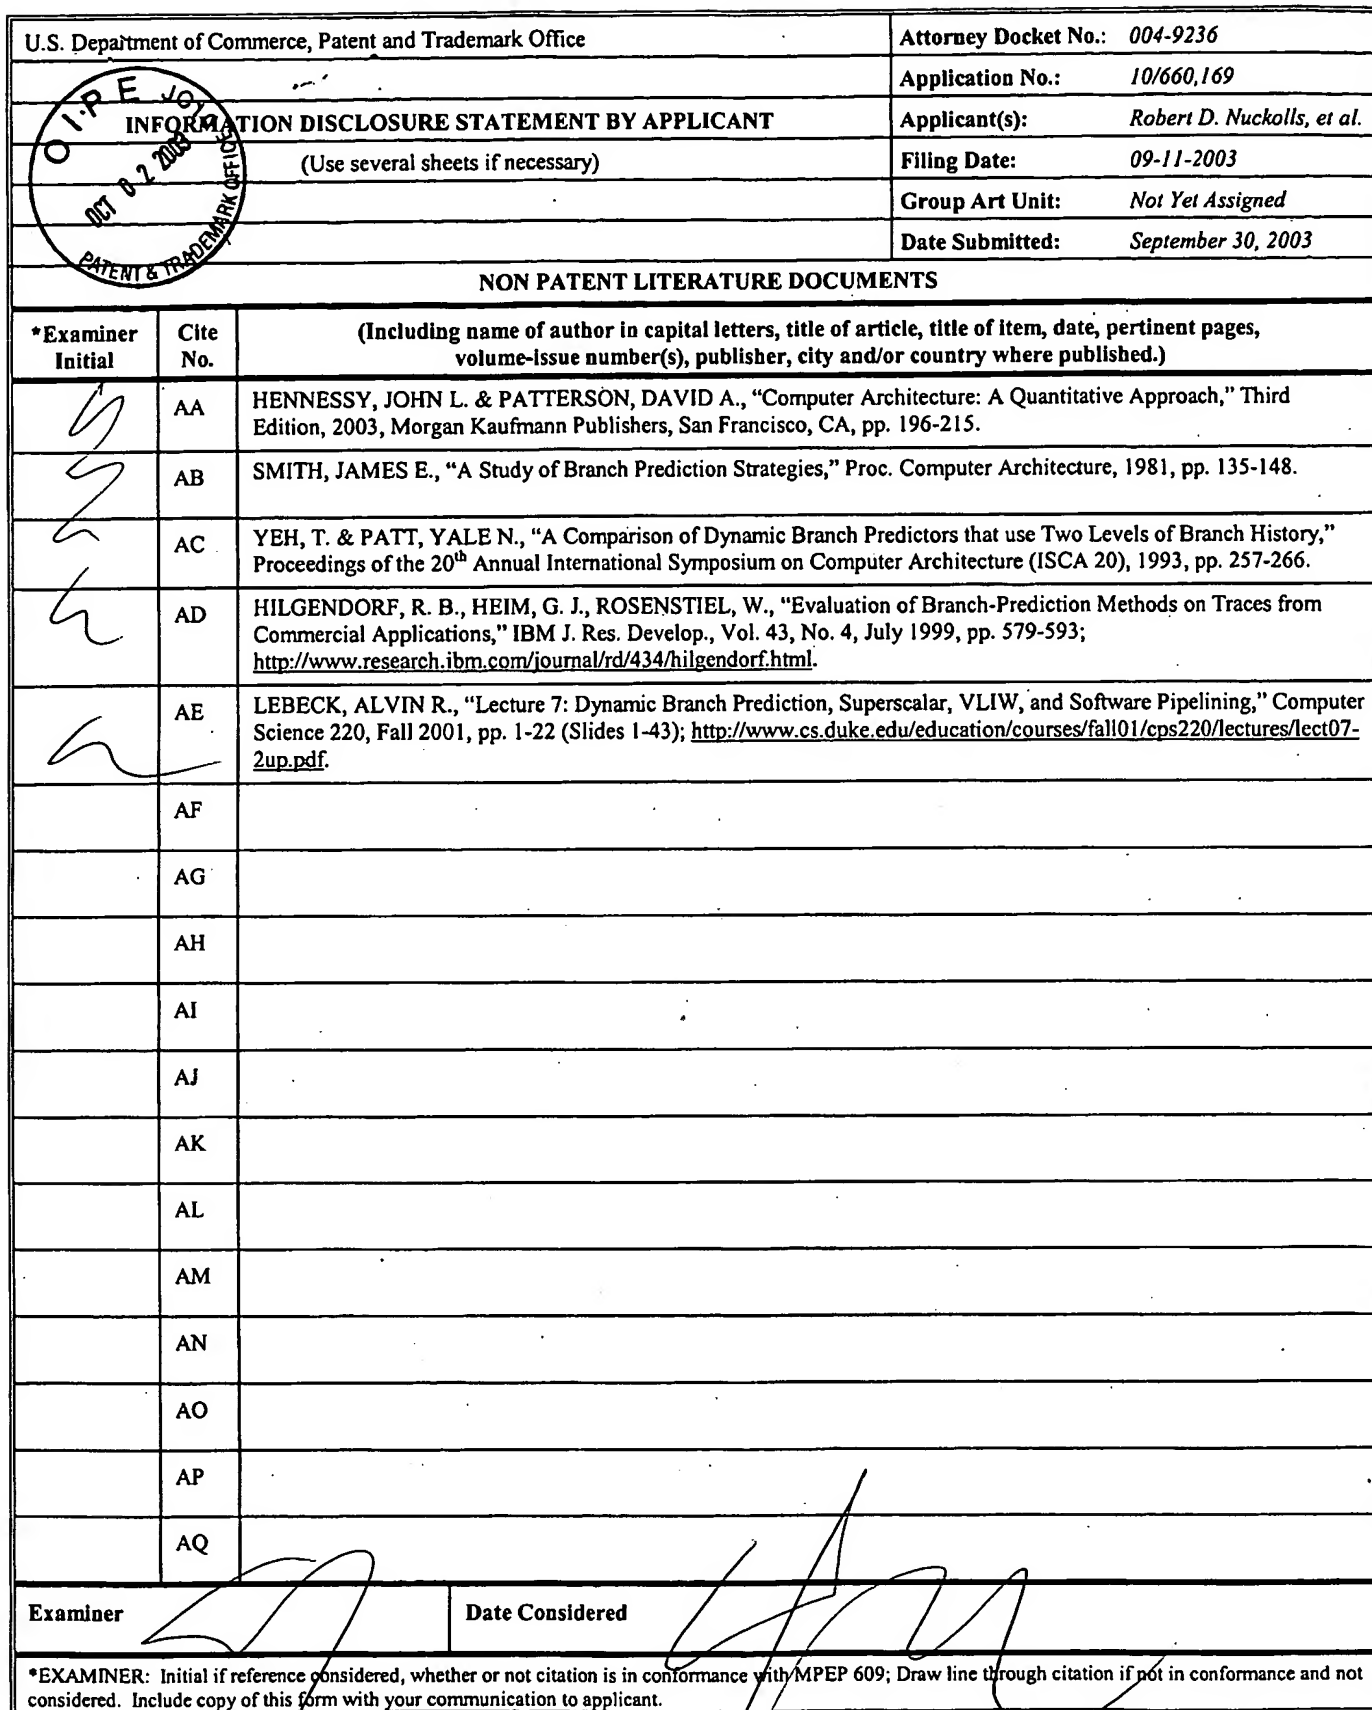 U.S. Department of Commerce, Patent and Trademark Office
Attorney Docket No.: 004-9236
Application No.: 10/660,169
INFORMATION DISCLOSURE STATEMENT BY APPLICANT
Applicant(s): Robert D. Nuckolls, et al.
(Use several sheets if necessary)
Filing Date: 09-11-2003
Group Art Unit: Not Yet Assigned
Date Submitted: September 30, 2003
O I P E
OCT 02 2003
PATENT & TRADEMARK OFFICE
NON PATENT LITERATURE DOCUMENTS
*Examiner Initial
Cite No.
(Including name of author in capital letters, title of article, title of item, date, pertinent pages,
volume-issue number(s), publisher, city and/or country where published.)
AA HENNESSY, JOHN L. & PATTERSON, DAVID A., “Computer Architecture: A Quantitative Approach,” Third
Edition, 2003, Morgan Kaufmann Publishers, San Francisco, CA, pp. 196-215.
AB SMITH, JAMES E., “A Study of Branch Prediction Strategies,” Proc. Computer Architecture, 1981, pp. 135-148.
AC YEH, T. & PATT, YALE N., “A Comparison of Dynamic Branch Predictors that use Two Levels of Branch History,”
Proceedings of the 20th Annual International Symposium on Computer Architecture (ISCA 20), 1993, pp. 257-266.
AD HILGENDORF, R. B., HEIM, G. J., ROSENSTIEL, W., “Evaluation of Branch-Prediction Methods on Traces from
Commercial Applications,” IBM J. Res. Develop., Vol. 43, No. 4, July 1999, pp. 579-593;
http://www.research.ibm.com/journal/rd/434/hilgendorf.html.
AE LEBECK, ALVIN R., “Lecture 7: Dynamic Branch Prediction, Superscalar, VLIW, and Software Pipelining,” Computer
Science 220, Fall 2001, pp. 1-22 (Slides 1-43); http://www.cs.duke.edu/education/courses/fall01/cps220/lectures/lect07-
2up.pdf.
AF
AG
AH
AI
AJ
AK
AL
AM
AN
AO
AP
AQ
Examiner
Date Considered
*EXAMINER: Initial if reference considered, whether or not citation is in conformance with MPEP 609; Draw line through citation if not in conformance and not
considered. Include copy of this form with your communication to applicant.